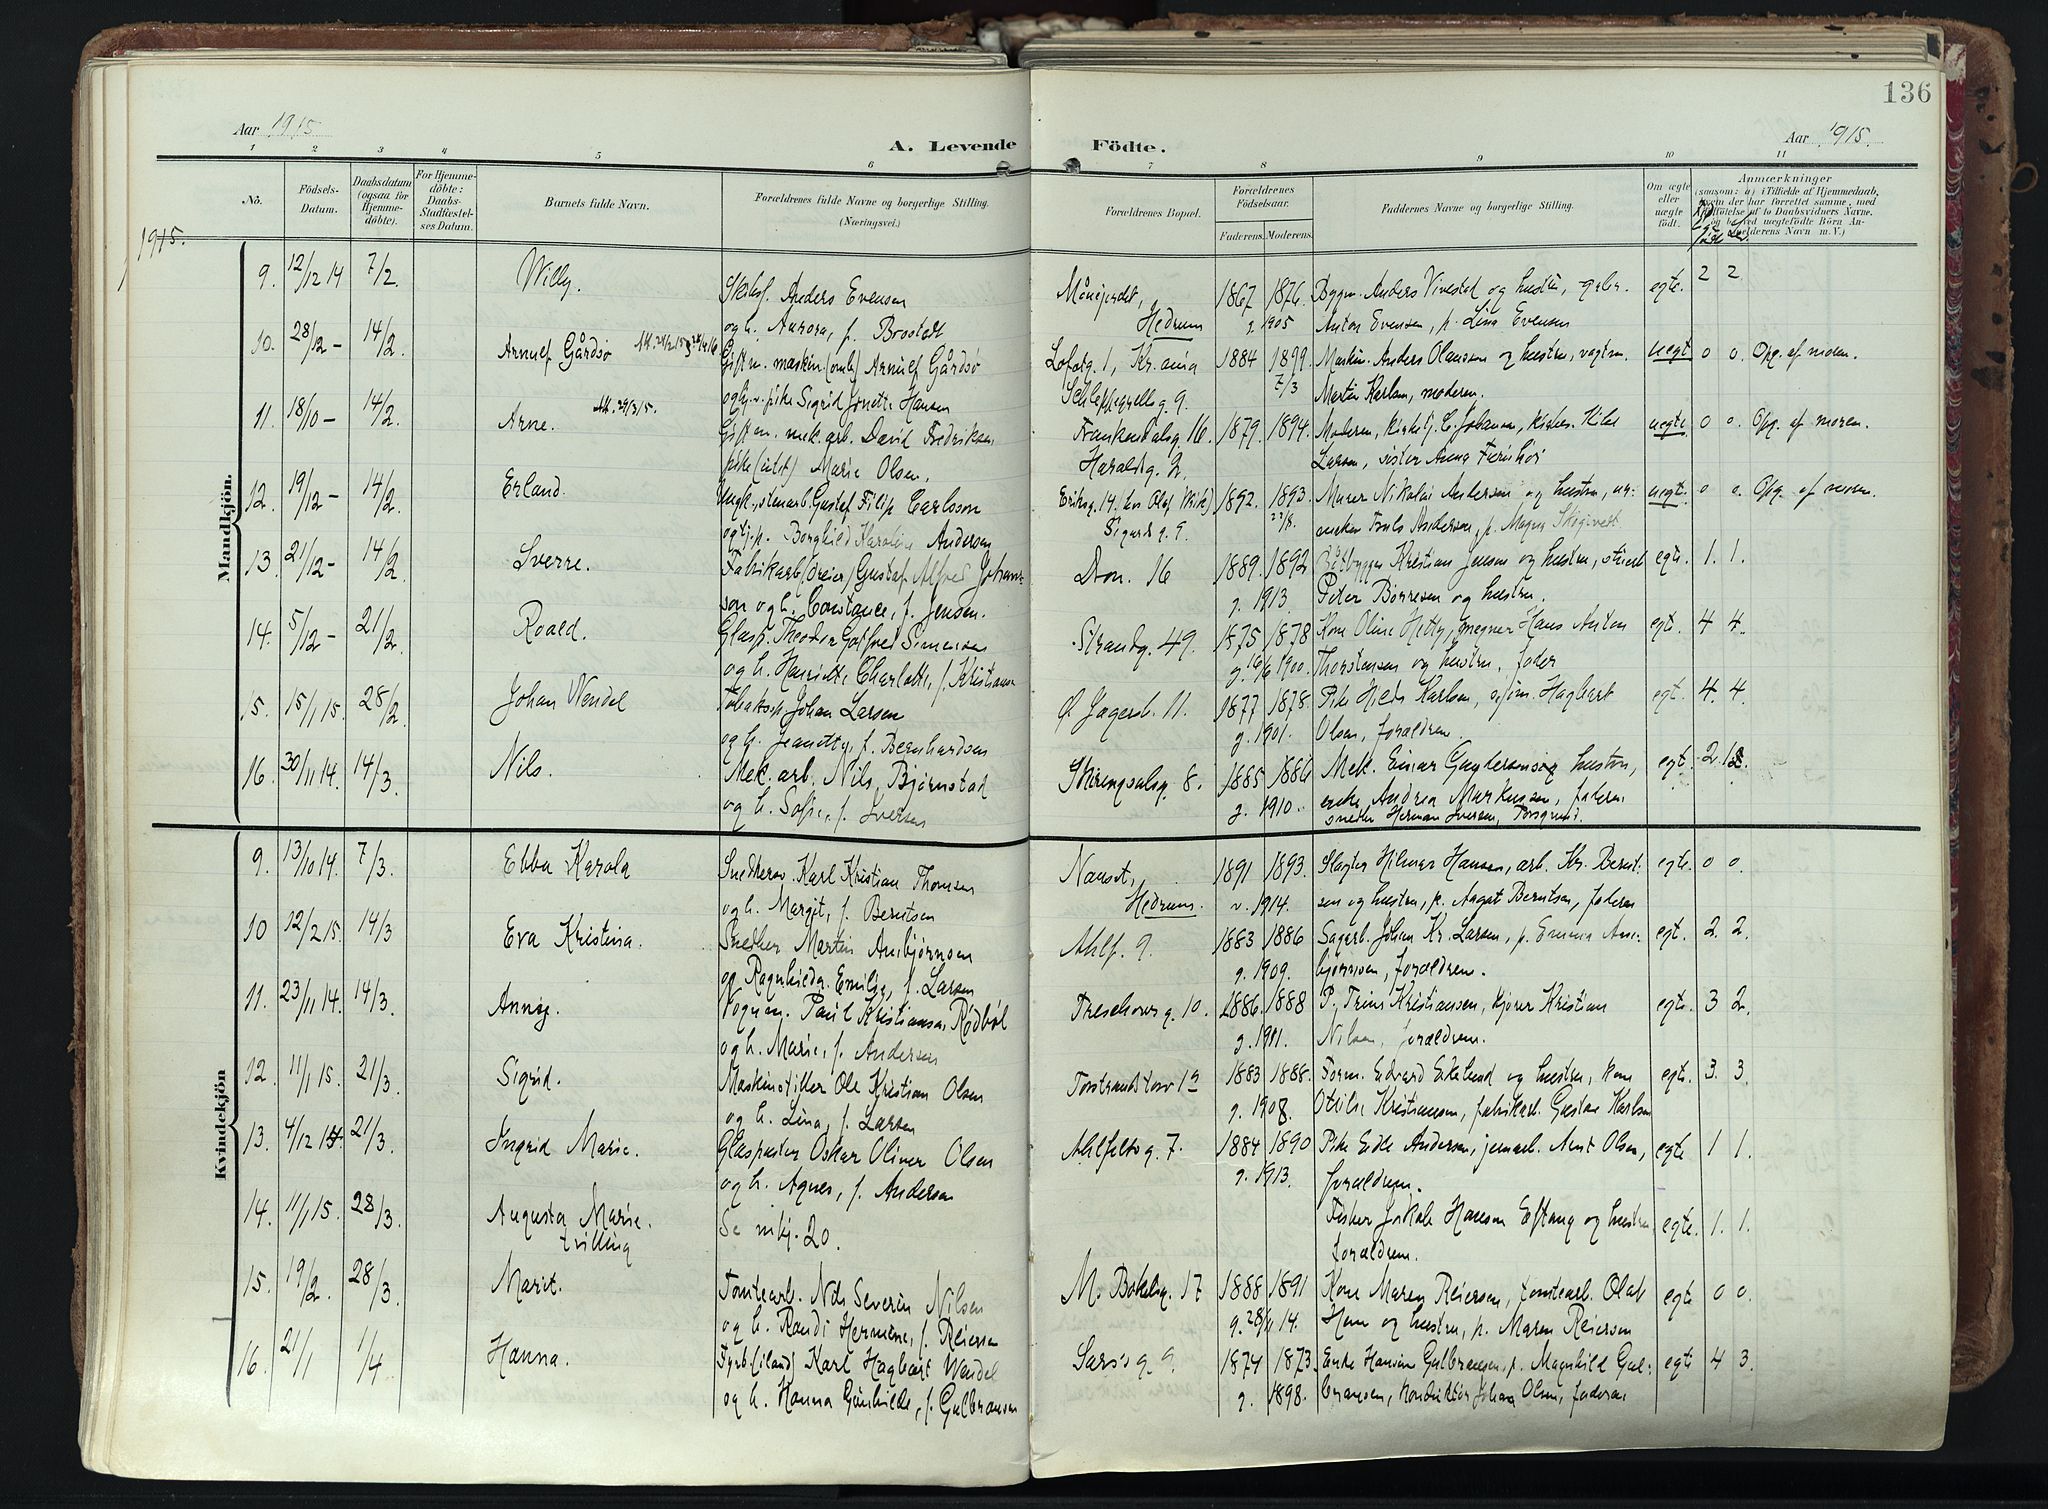 136
Aar 1915
Aar 1915.
A. Levende Födte.
1 2 3 4 5 6 7 8 9 10 11
No.
Födsels-
Datum.
Daabsdatum
(ogsaa for
Hjemme-
döbte).
For Hjemme-
döbte:
Daabs-
Stadfæstel-
ses Datum.
Barnets fulde Navn.
Forældrenes fulde Navne og borgerlige Stilling.
(Næringsvei.)
Forældrenes Bopæl.
Forældrenes
Födselsaar.
Faderens. Moderens.
Faddernes Navne og borgerlige Stilling.
Om ægte
eller
uægte
födt.
Anmærkninger
(saasom: a) i Tilfælde af Hjemmedaab,
hvem der har forrettet samme, med
Tilföielse af to Daabsvidners Navne,
og b) ved uægtefödte Börn An-
melderens Navn m. V.)
1915.
Mandkjön.
9. 12/12 14 7/2. Willy. Anders Evensen Hedrum 1867 1876. Bygm. Anders Vivestad og hustru, egte. 2 2.
og h. Aurora, f. Brostedt g. 1905 Anton Evensen, p. Lina Evensen
10. 28/12 – 14/2. Arnulf Gårdsø Gift m. maskin. Arnulf Gårdsø 1884 1899. Maskin. Anders Olausson og hustru, uegt 0 0. Opg. af moren.
og pike Sigrid Jonette Hansen Schleppegrellsg. 9. 7/3 Martin Karlsen, moderen.
11. 18/10 – 14/2. Arne. Gift m. mek. arb. David Fredriksen Frankendalsg. 16. 1879. 1894. Moderen, Johansen, uegte 0 0. Opg. af moren.
pike Marie Olsen. Haraldsg. 2. Larsen, søster Anna
12. 19/12 – 14/2. Erland. Ungk., stenarb. Gustaf Filip Carlsson Eriksg. 14. 1892. 1893. Murer Nikolai Andersen og hustru, uegt. 0 0. Opg. af moren.
Borghild Karoline Andersen Sigurds g. 9. 22/8. Andersen, p. Magna
13. 21/12 – 14/2. Sverre. Fabrikarb. (dreier) Gustaf Alfred Johans- Dron. 16 1889. 1892 Båtbygger Kristian Jensen og hustru, egte. 1. 1.
son og h. Constance, f. Jensen. g. 1913. Peter Børresen og hustru.
14. 5/12 – 21/2. Roald. Glasp. Theodor Gotfred Simensen Strandg. 49. 1875 1878 Kone Oline Hetty, gregner Hans Anton egt. 4 4.
og h. Henriette Charlotte, f. Kristiansen g. 16/6 1900. Thorstensen og hustru, fader
15. 15/1 15. 28/2. Johan Wendel Tobakssp. Johan Larsen Ø. Jegersb. 11. 1877 1878. Pike Hjørdis Karlsen, sjøm. Hagbart egt. 4. 4.
og h. Jeanette, f. Bernhardsen g. 1901. Olsen, forældren.
16. 30/11 14. 14/3. Nils. Mek. arb. Nils Bjørnstad Skiringsalsg. 8. 1885 1886 Mek. Einar Gundersen og hustru, egt. 2.
og h. Sofie, f. Iversen g. 1910. enke Andrea Markussen, faderen
snedker Herman Iversen, Porsgrund.
Kvindekjön
9. 13/10 14. 7/3. Ebba Karola Snedkersv. Karl Kristian Thomsen Nanset, 1891 1893. Slagter Hilmar Hansen, arb. Kr. Bernt- egte. 0 0.
og h. Margit, f. Berntsen Hedrum. v. 1914. sen og hustru, p. Aagot Berntsen, faderen
10 12/2 15. 14/3 Eva Kristina. Snedker Martin Arnbjørnsen Ahlf. 9. 1883 1886 Sagarb. Johan Kr. Larsen, p. Emma Arn- egt. 2. 2.
og Ragnhilda Emilie, f. Larsen g. 1909. bjørnsen, forældren.
11. 23/11 14. 14/3. Anny. Vognm. Paul Kristiansen Rødbøl Treschows g. 10. 1886. 1888 P. Trine Kristiansen, kjører Kristian egte. 3 2.
og h. Marie, f. Andersen g. 1911. Nilsen, forældren.
12. 11/1 15. 21/3. Sigrid. Maskinstiller Ole Kristian Olsen Torstrandstorv 1a 1883 1888. Form. Edvard Eikelund og hustru, kone egte. 3. 3.
og h. Lina, f. Larsen g. 1908. Otilie Kristiansen, fabrikarb. Gustav Karlsen
13. 4/12 14. 21/3. Ingrid Marie. Glaspuster Oskar Oliver Olsen Ahlfeldts g. 7. 1884 1890 Pike Edle Andersen, jernarb. Arnt Olsen, egte 1 1.
og h. Agnes, f. Andersen g. 1913. forældren.
14. 11/1 15. 28/3. Augusta Marie. Se mkj. 20. Fisker Jakob Hansen Eftang og hustru egte. 1. 1.
tvilling forældren.
15. 19/2. 28/3. Marit. Tomtearb. Nils Severin Nilsen M. Bøkeligg. 17 1888 1891 Kone Maren Reiersen, tomtearb. Olaf egte 0 0.
og h. Randi Hermine, f. Reiersen g. 28/11 14. Hem og hustru, p. Maren Reiersen
16. 21/1 1/4 Hanna. Fyrb. (iland) Karl Hagbart Wendel Sars's g. 9. 1874 1873. Enke Hansine Gulbransen, p. Magnhild Gul- egte 4 3.
og h. Hanna Gunhilde, f. Gulbransen g. 1898. bransen, konduktør Johan Olsen, faderen